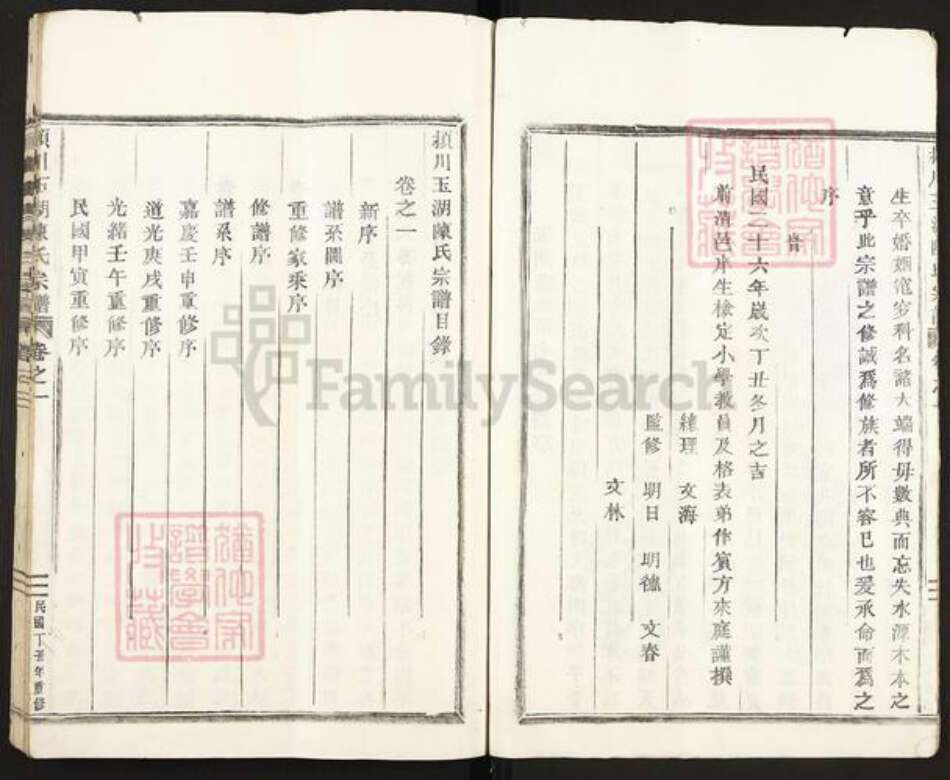 生卒婚姻窀穸科名諸大端得毋數典而忘失水源木本之
意乎此宗譜之修誠為修族者所不容已也爰承命而為之
序
時
民國二十六年歲次丁丑冬月之吉
前清邑庠生檢定小學教員及格表弟作賓方來庭謹撰
總理 文海
監修 明日 明德 文春
文林
潁川玉湖陳氏宗譜目錄
卷之一
新序
譜系圖序
重修家乘序
修譜序
譜系序
嘉慶壬申重修序
道光庚戌重修序
光緒壬午重修序
民國甲寅重修序
潁川玉湖陳氏宗譜 卷之一
民國丁丑年重修
FamilySearch